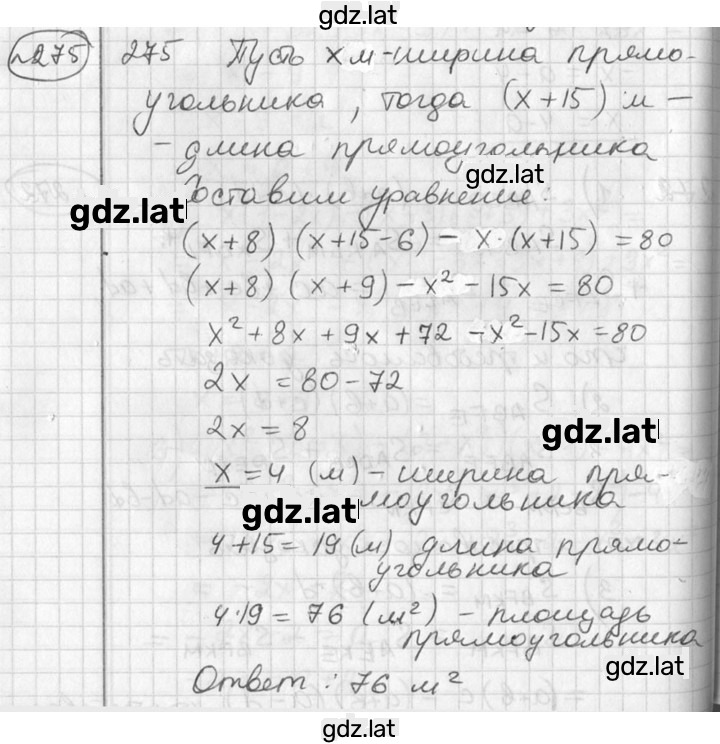 gdz.lat
№275
275 Пусть x м - ширина прямо-
угольника, тогда (x+15) м -
- длина прямоугольника
gdz.lat
Составим уравнение:
gdz.lat
(x+8) (x+15-6) - x·(x+15) = 80
(x+8) (x+9) - x² - 15x = 80
x² + 8x + 9x + 72 - x² - 15x = 80
2x = 80 - 72
2x = 8
gdz.lat
x = 4 (м) - ширина пря-
моугольника
gdz.lat
4+15 = 19 (м) длина прямо-
угольника
4·19 = 76 (м²) - площадь
прямоугольника
gdz.lat
Ответ: 76 м²
gdz.lat